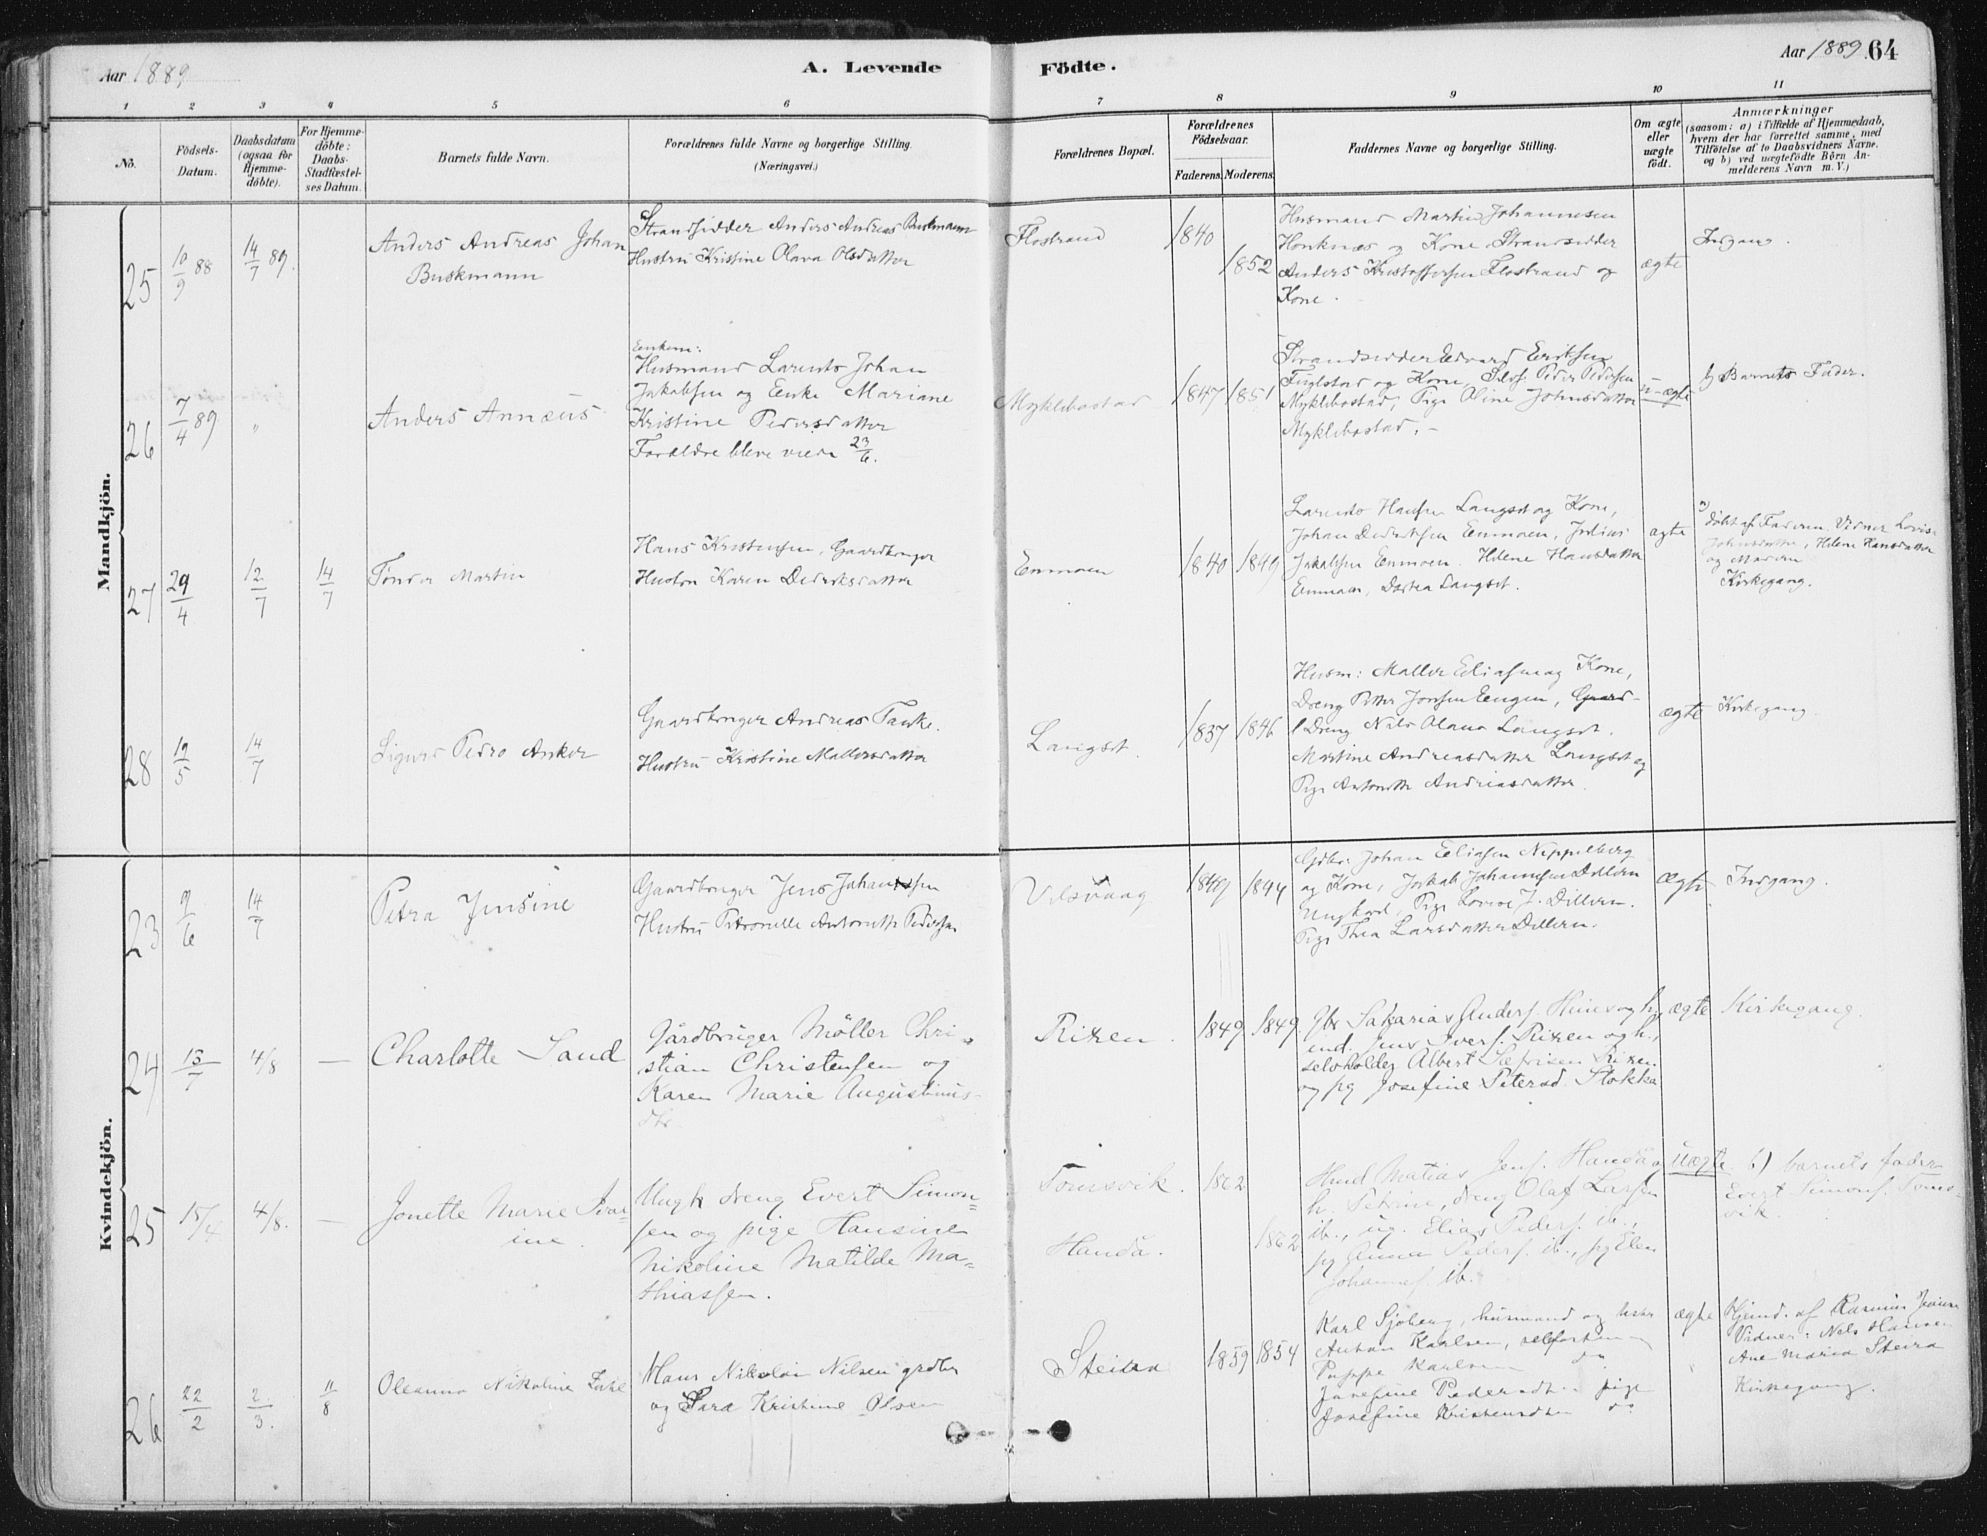 Aar 1889
A. Levende
Födte.
Aar 1889 64
1 2 3 4 5 6 7 8 9 10 11
No.
Födsels-
Datum.
Daabsdatum
(ogsaa for
Hjemme-
döbte).
For Hjemme-
döbte:
Daabs-
Stadfæstel-
ses Datum.
Barnets fulde Navn.
Forældrenes fulde Navne og borgerlige Stilling.
(Næringsvei.)
Forældrenes Bopæl.
Forældrenes
Födselsaar.
Faderens. Moderens.
Faddernes Navne og borgerlige Stilling.
Om ægte
eller
uægte
født.
Anmærkninger
(saasom: a) i Tilfælde af Hjemmedaab,
hvem der har forrettet samme, med
Tilföielse af to Daabsvidners Navne.
og b) ved uægtefödte Börn An-
melderens Navn m. V.)
Mandkjön.
25
10/9 88
14/7 89.
Anders Andreas Johan
Buskmann
Strandsidder Anders Andreas Buskmann
Hustru Kristine Olava Olsdatter
Flostrand
1840
1852
Husmand Martin Johannesen
Honknæs og Kone, Strandsidder
Anders Kristoffersen Flostrand og
Kone.
ægte
Indgang.
26
7/4 89
"
Anders Annæus
Enkem:
Husmand Larents Johan
Jakobsen og Enke Mariane
Kristine Pedersdatter
Forældre bleve viede 23/6.
Myklebostad
1847 1851
Strandsidder Edvard Eriksen
Fuglstad og Kone, Selvf. Peder Pedersen
Myklebostad, Pige Oline Johnsdatter
Myklebostad.
u-ægte
b) Barnets Fader.
27
29/4
12/7
14/7
Tønder Martin
Hans Kristensen, Gaardbruger
Hustru Karen Dedriksdatter
Enmoen
1840 1849
Larents Hansen Langset og Kone,
Johan Dedriksen Enmoen, Julius
Jakobsen Enmoen. Helene Hansdatter
Enmoen, Dortea Langset.
ægte
a) døbt af Faderen. Vidner Lovise
Johnsdatter, Helene Hansdatter
og Moderen
Kirkegang.
28
19/5
14/7
Sigurd Pedro Anker
Gaardbruger Andreas Tanke.
Hustru Kristine Mallersdatter
Langset
1837 1846
Husm: Maller Eliasen og Kone,
Dreng Peter Jonsen Eengen, Gaard-
Dreng Nils Olaus Langset.
Martine Andreasdatter Langset og
Pige Antonette Andreasdatter
ægte
Kirkegang.
Kvindekjön.
23
9/6
14/7
Petra Jensine
Gaardbruger Jens Johansen
Hustru Petronelle Antonette Pedersen
Utsvaag
1849 1844
Gdbr: Johan Eliasen Nippelberg
og Kone, Jakob Johannesen Dillern
Ungkarl, Pige Lovise J. Dillern.
Pige Thea Larsdatter Dillern.
ægte
Indgang.
24
13/7
4/8
—
Charlotte Sand
Gårdbruger Møller Chri-
stian Christensen og
Karen Marie Augustinus-
dtr.
Rixen.
1849 1849.
Gbr Sakarias Anders. Hunes og h,
ind. Jens Ivers. Rixen og h.,
selvholder Albert Sefrisen Rixen
og pg Josefine Petersd. Stokka
ægte
Kirkegang.
25
15/4
4/8.
—
Jonette Marie Iva-
ine.
Ungk dreng Evert Simon-
sen og pige Hansine
Nikoline Matilde Ma-
thiassen.
Tomsvik.
Handå.
1862
1862
Hmd Matias Jens. Handå og
h. Petrine, dreng Olaf Larsen
ib., ug. Elias Peders. ib.,
pg Anna Peders. ib., pg Elen
Johannes. ib.
uægte
b) barnets fader
Evert Simons. Toms-
vik.
26
22/2
2/3.
11/8
Oleanna Nikoline
Hans Nikolai Nilsen grdbr
og Sara Kristine Olsen
Steiraa
1859 1854
Karl Sjøberg, husmand og hustr
Anton Karlsen,
Karlsen do
Josefine Pedersdtr pige
Josefine Kristensdtr do
ægte
Hjemd. af Rasmus
Vidner: Nels Hansen
Ane Maria Steira
Kirkegang.